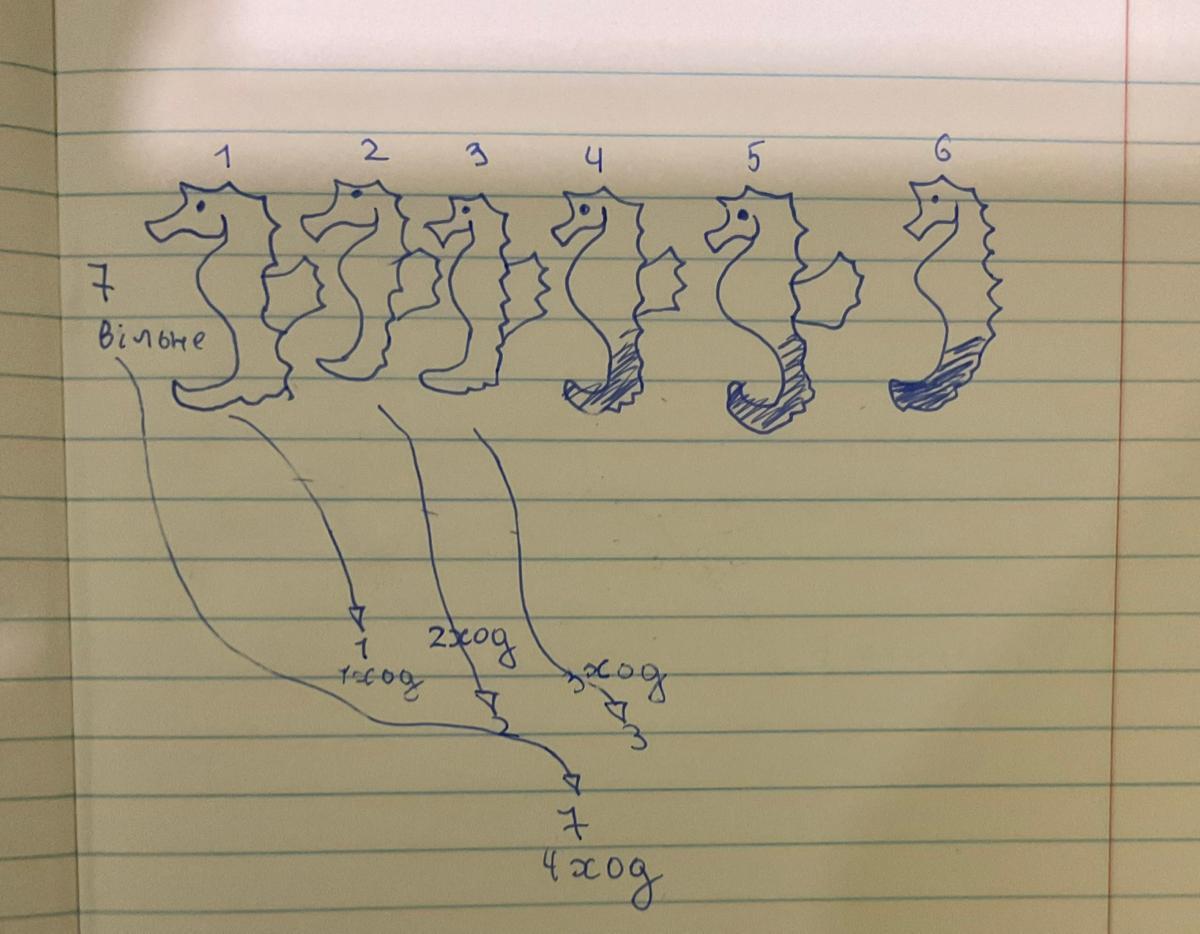 1 2 3 4 5 6
7
вільне
1
1 ход
2 ход
2
3 ход
3
7
4 ход